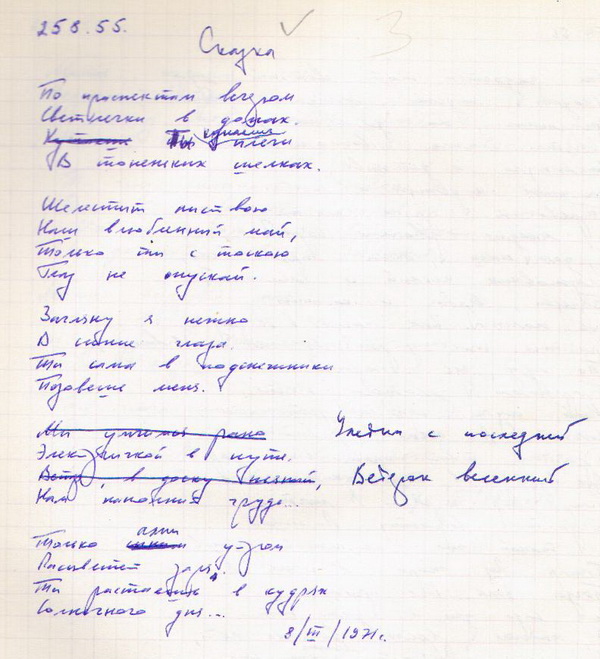 258.55.
Сказка
3
По проспектам вечером
Светлячки в домах.
Кутаешь Ты кутаешь плечи
В тоненьких шелках.
Шелестит листвою
Наш влюбленный май,
Только ты с тоскою
Глаз не опускай.
Загляну я нежно
В синие глаза.
Ты сама в подснежники
Позовешь меня.
Мы умчимся рано Улетим с последней
Электричкой в пути.
Ветер, в доску, Ветерок весенний
Нам наполнит грудь...
Только утром
Рассветёт заря.
Ты растаешь в кудрях
Солнечного дня...
8/III/1971г.